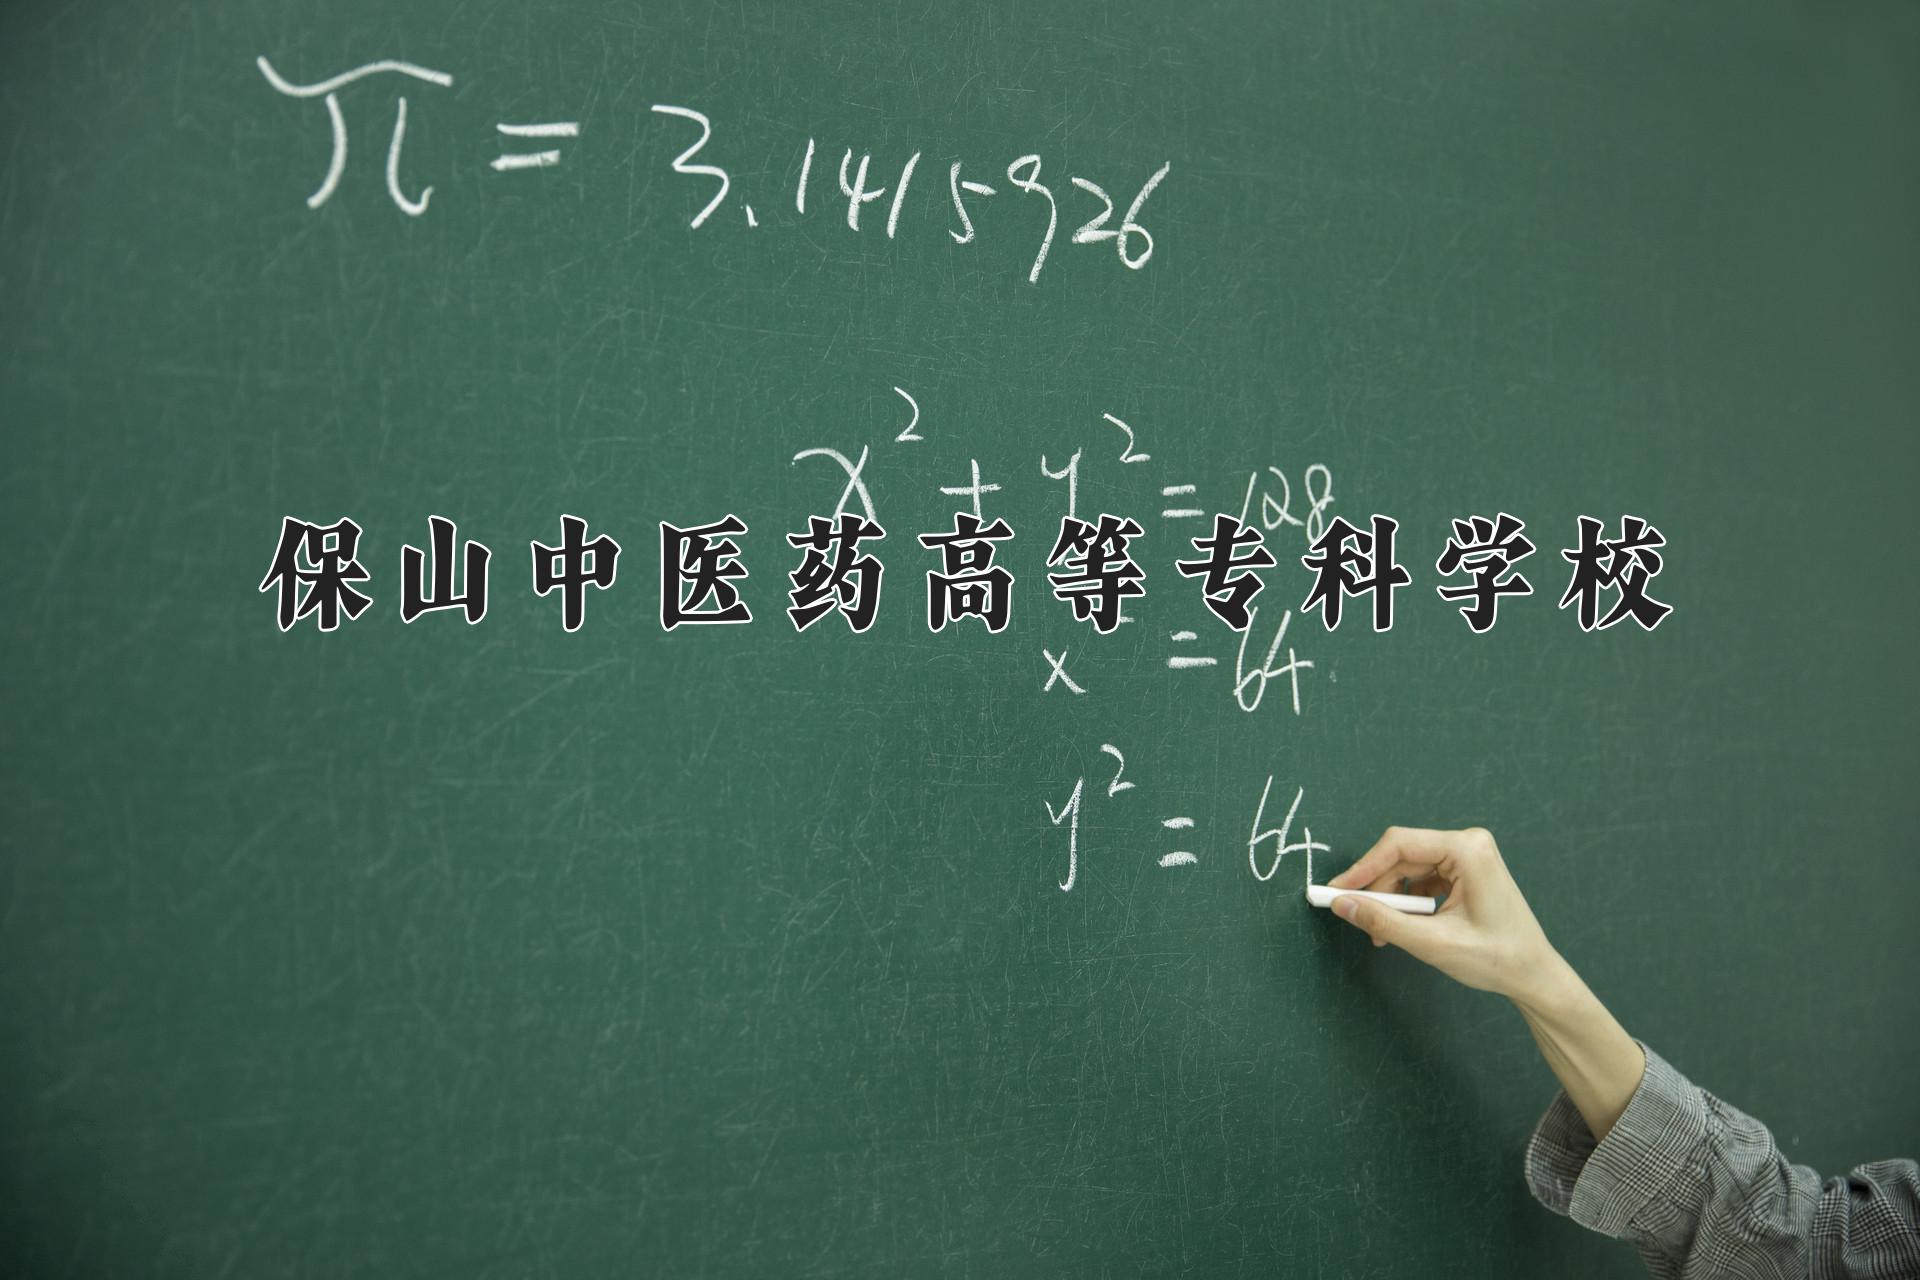 π = 3.1415926
x² + y² = 128
保山中医药高等专科学校
x = 64
y² = 64